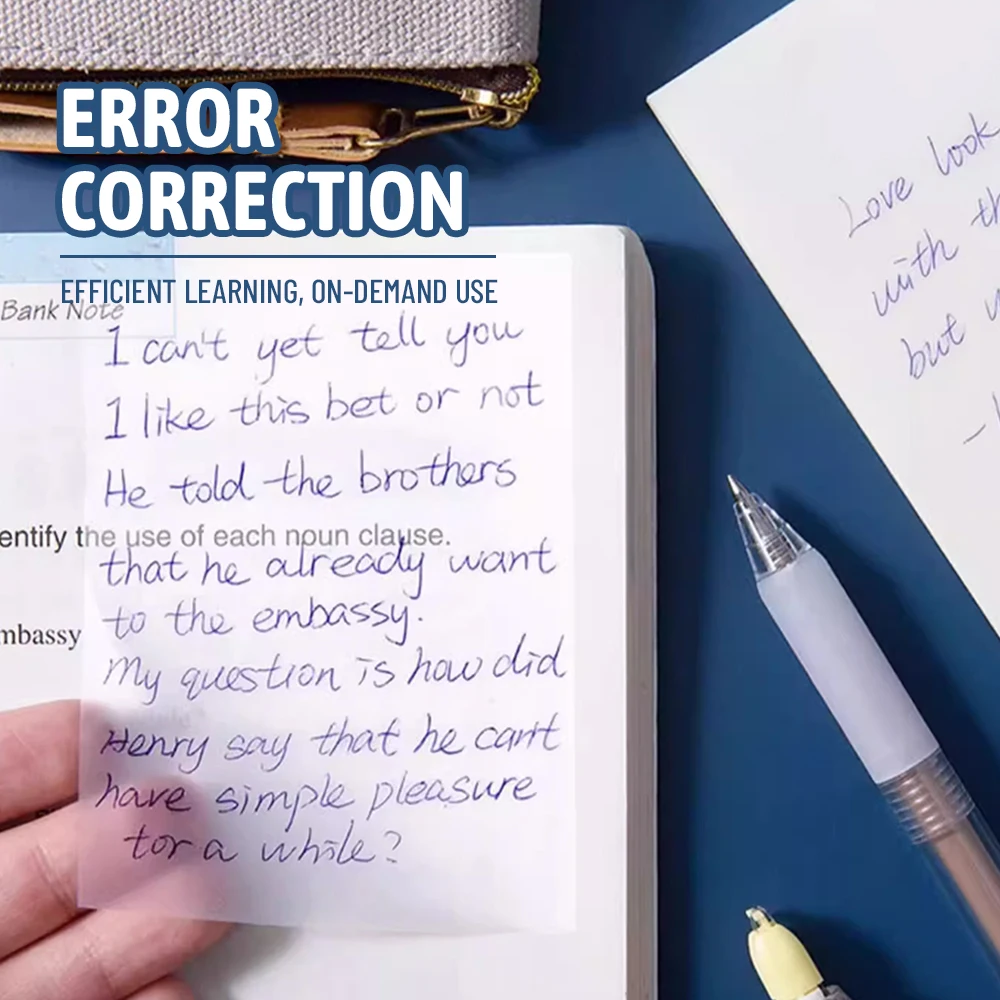 ERROR
CORRECTION
EFFICIENT LEARNING, ON-DEMAND USE
Bank Note
1 can't yet tell you
1 like this bet or not
He told the brothers
entify the use of each noun clause.
that he already want
mbassy
to the embassy.
My question is how did
Henry say that he can't
have simple pleasure
tor a while?
Love look
with th
but w